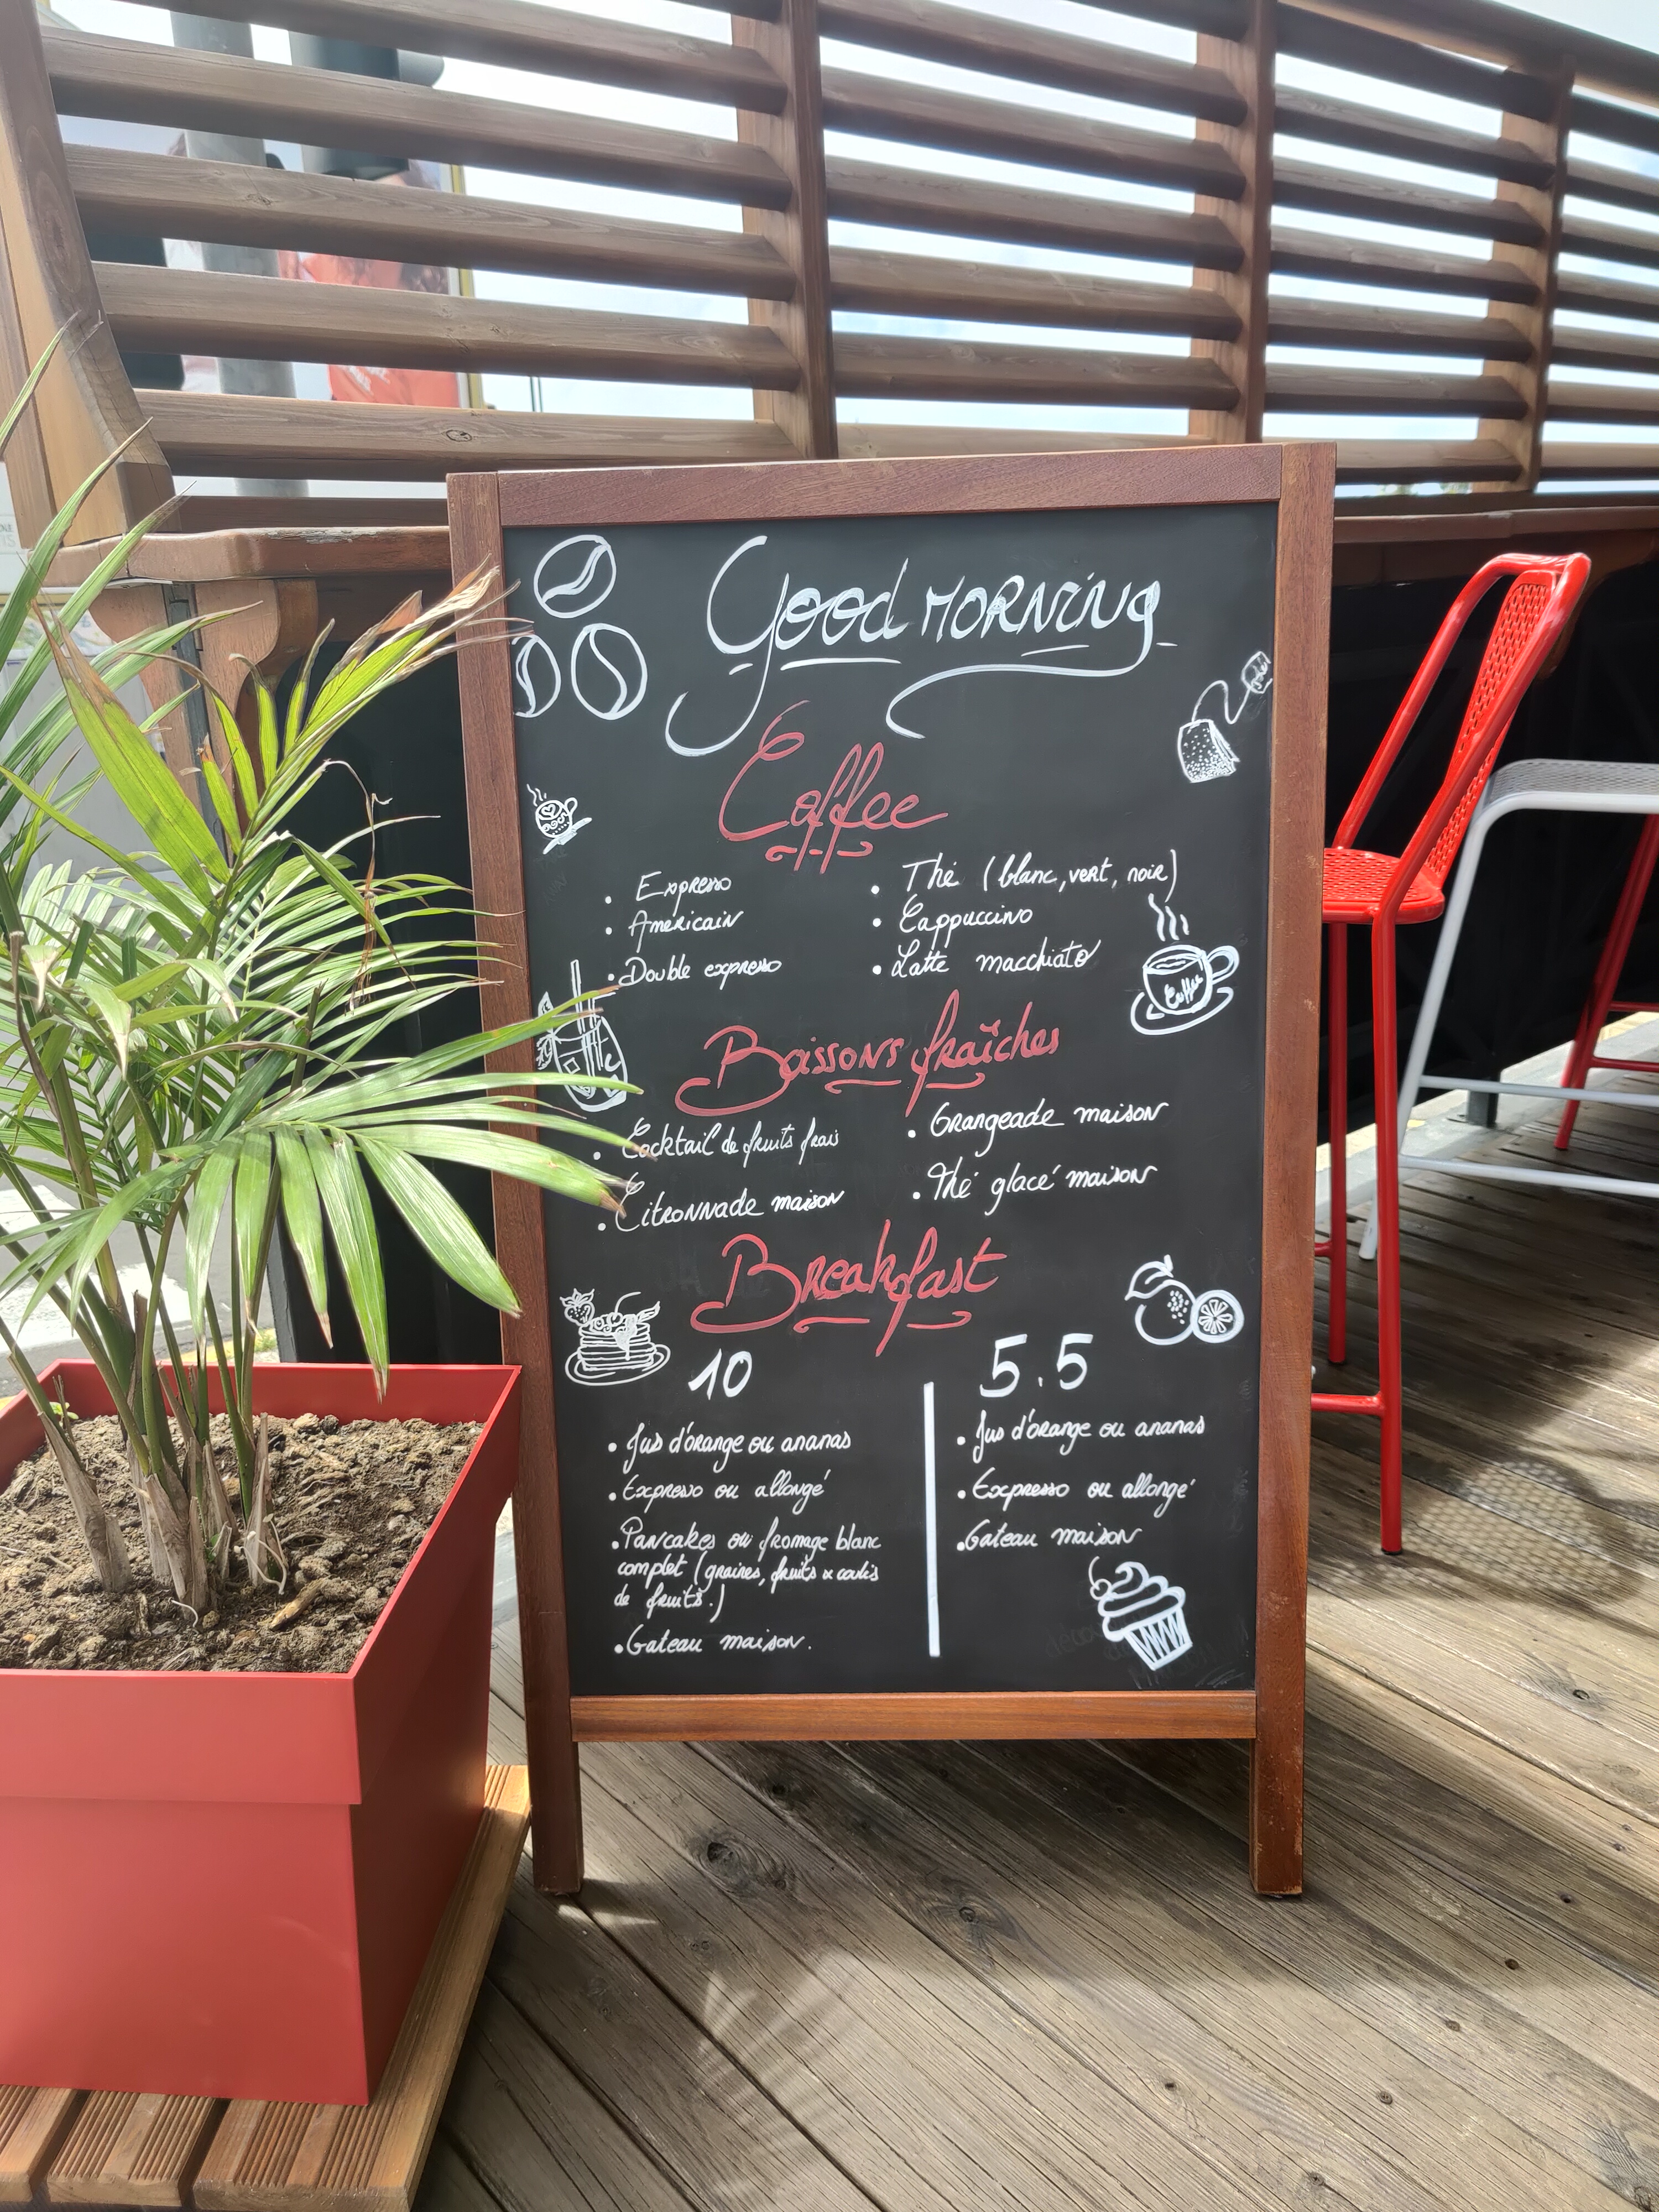 Good MORNING
Coffee
• Expresso
• Américain
• Double expresso
• Thé (blanc, vert, noir)
• Cappuccino
• Latte macchiato
Coffee
Boissons fraîches
• Cocktail de fruits frais
• Citronnade maison
• Orangeade maison
• Thé glacé maison
Breakfast
10
• Jus d'orange ou ananas
• Expresso ou allongé
• Pancakes ou fromage blanc
complet (graines, fruits & coulis
de fruits.)
• Gateau maison.
5.5
• Jus d'orange ou ananas
• Expresso ou allongé
• Gateau maison